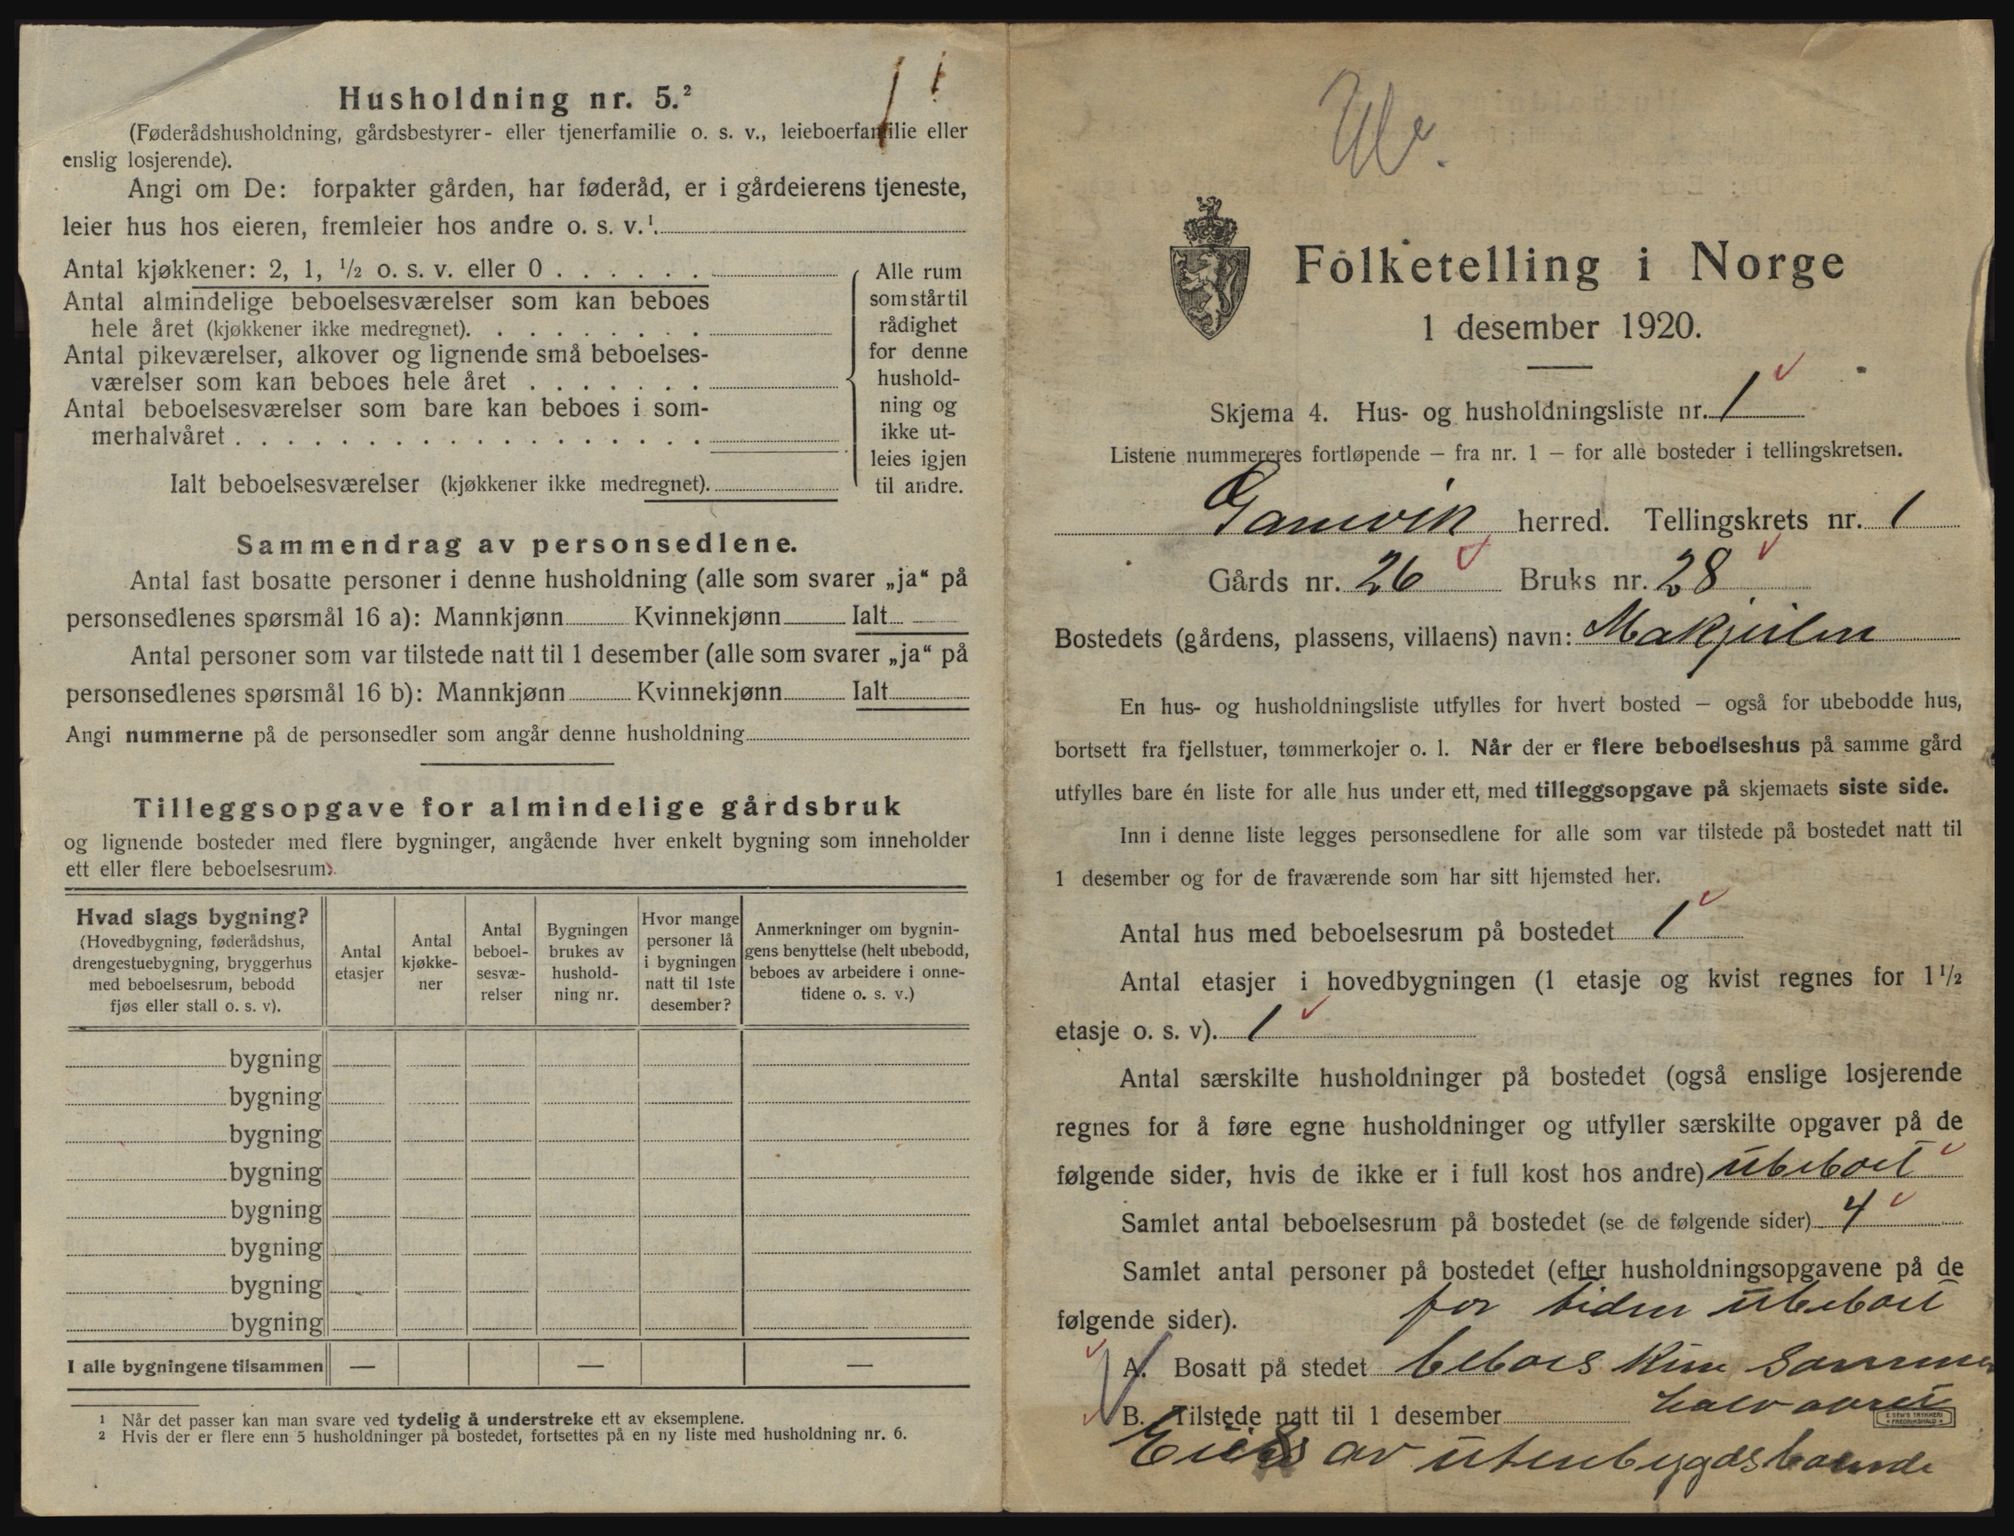 Husholdning nr. 5.²
(Føderådshusholdning, gårdsbestyrer- eller tjenerfamilie o. s. v., leieboerfamilie eller
enslig losjerende).
Angi om De: forpakter gården, har føderåd, er i gårdeierens tjeneste,
leier hus hos eieren, fremleier hos andre o. s. v.¹.
Antal kjøkkener: 2, 1, ½ o. s. v. eller 0 . . . . . .
Antal almindelige beboelsesværelser som kan beboes
hele året (kjøkkener ikke medregnet). . . . . . . . .
Antal pikeværelser, alkover og lignende små beboelses-
værelser som kan beboes hele året . . . . . . .
Antal beboelsesværelser som bare kan beboes i som-
merhalvåret . . . . . . . . . . . . . . . . .
Ialt beboelsesværelser (kjøkkener ikke medregnet).
Alle rum
som står til
rådighet
for denne
hushold-
ning og
ikke ut-
leies igjen
til andre.
Sammendrag av personsedlene.
Antal fast bosatte personer i denne husholdning (alle som svarer „ja“ på
personsedlenes spørsmål 16 a): Mannkjønn Kvinnekjønn Ialt
Antal personer som var tilstede natt til 1 desember (alle som svarer „ja“ på
personsedlenes spørsmål 16 b): Mannkjønn Kvinnekjønn Ialt
Angi nummerne på de personsedler som angår denne husholdning
Tilleggsopgave for almindelige gårdsbruk
og lignende bosteder med flere bygninger, angående hver enkelt bygning som inneholder
ett eller flere beboelsesrum.
Hvad slags bygning?
(Hovedbygning, føderådshus,
drengestuebygning, bryggerhus
med beboelsesrum, bebodd
fjøs eller stall o. s. v).
Antal
etasjer
Antal
kjøkke-
ner
Antal
beboel-
sesvæ-
relser
Bygningen
brukes av
hushold-
ning nr.
Hvor mange
personer lå
i bygningen
natt til 1ste
desember?
Anmerkninger om bygnin-
gens benyttelse (helt ubebodd,
beboes av arbeidere i onne-
tidene o. s. v.)
bygning
bygning
bygning
bygning
bygning
bygning
bygning
bygning
I alle bygningene tilsammen — — —
1 Når det passer kan man svare ved tydelig å understreke ett av eksemplene.
2 Hvis der er flere enn 5 husholdninger på bostedet, fortsettes på en ny liste med husholdning nr. 6.
Folketelling i Norge
1 desember 1920.
Skjema 4. Hus- og husholdningsliste nr. 1
Listene nummereres fortløpende – fra nr. 1 – for alle bosteder i tellingskretsen.
Gamvik herred. Tellingskrets nr. 1
Gårds nr. 26 Bruks nr. 28
Bostedets (gårdens, plassens, villaens) navn: Makjeilen
En hus- og husholdningsliste utfylles for hvert bosted – også for ubebodde hus,
bortsett fra fjellstuer, tømmerkojer o. l. Når der er flere beboelseshus på samme gård
utfylles bare én liste for alle hus under ett, med tilleggsopgave på skjemaets siste side.
Inn i denne liste legges personsedlene for alle som var tilstede på bostedet natt til
1 desember og for de fraværende som har sitt hjemsted her.
Antal hus med beboelsesrum på bostedet 1
Antal etasjer i hovedbygningen (1 etasje og kvist regnes for 1 ½
etasje o. s. v). 1
Antal særskilte husholdninger på bostedet (også enslige losjerende
regnes for å føre egne husholdninger og utfyller særskilte opgaver på de
følgende sider, hvis de ikke er i full kost hos andre) ubeboet
Samlet antal beboelsesrum på bostedet (se de følgende sider) 4
Samlet antal personer på bostedet (efter husholdningsopgavene på de
følgende sider). for tiden ubeboet
A. Bosatt på stedet beboes kun sommer
halvaaret
B. Tilstede natt til 1 desember
E. SEM'S TRYKKERI
FREDRIKSHALD
Eies av utenbygdsboende